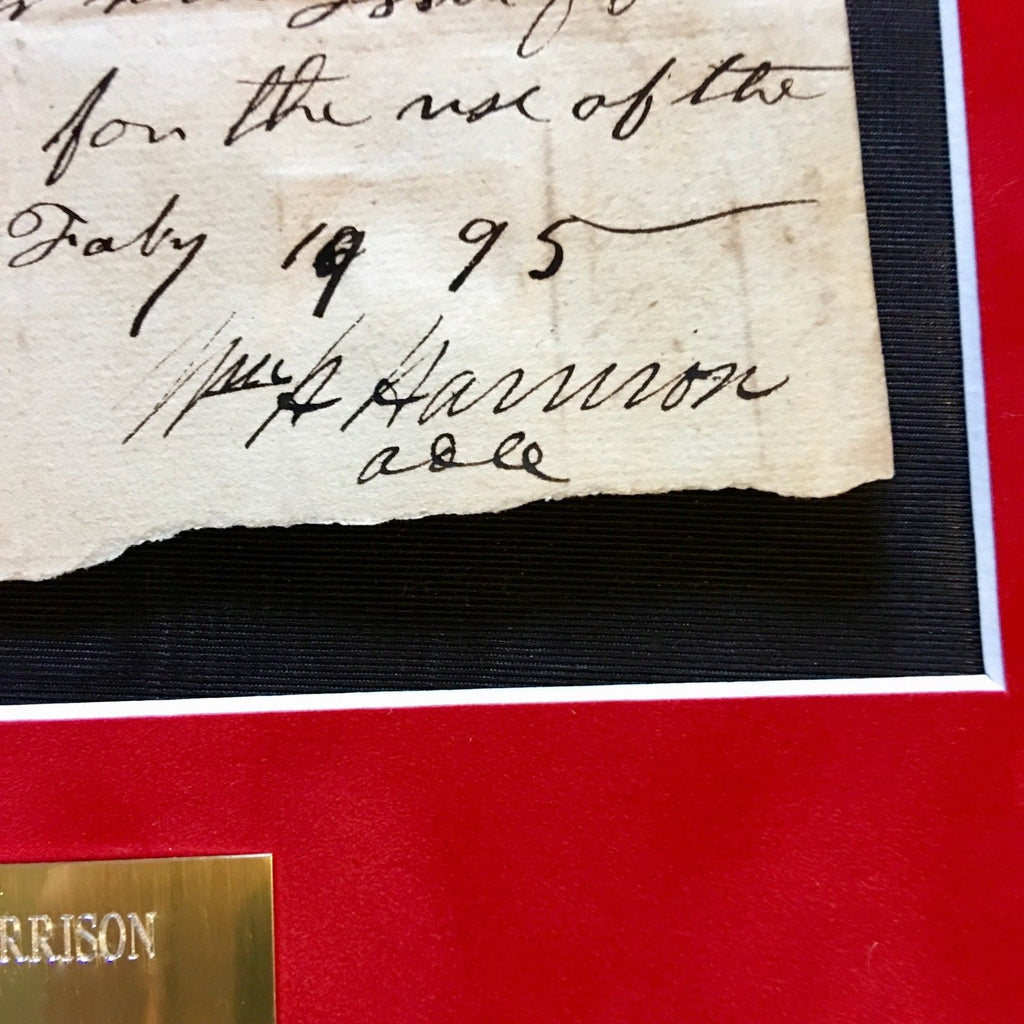 for the use of the
Faby 19 95
Wm H Harrison
adce
RRISON